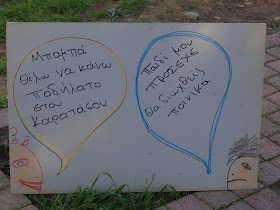 Μπαμπά
θέλω να κάνω
ποδήλατο
στου
Καρατάσου
παιδί μου
ΠΡΟΣΕΧΕ
θα διωχθείς
ποινικά